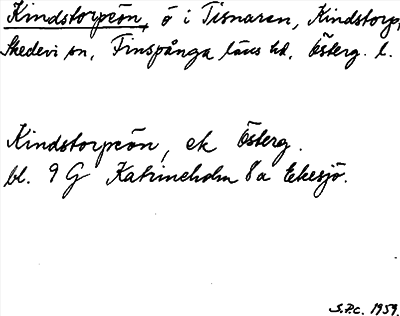 Kindstorpeön, ö i Tisnaren, Kindstorp,
Skedevi sn, Finspånga läns hd, Österg. l.
Kindstorpeön, ek Österg.
bl. 9 G Katrineholm 8a Ekesjö.
S.P.C. 1959.